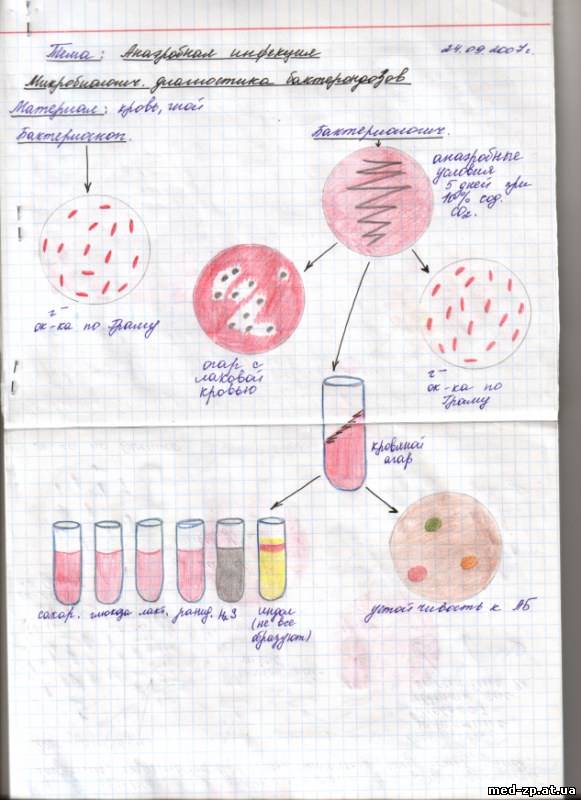 Тема: Анаэробная инфекция 24.09.2007г.
Микробиологич. диагностика бактероидозов
Материал: кровь, гной
Бактериоскоп.
Бактериологич.
анаэробные
условия
5 дней при
10% сод.
CO₂.
г⁻
ок-ка по Граму
агар с
лаковой
кровью
г⁻
ок-ка по
Граму
кровяной
агар
сахар. глюкоза лакт. H₂S индол
(не все
образуют)
устойчивость к АБ
med-zp.at.ua